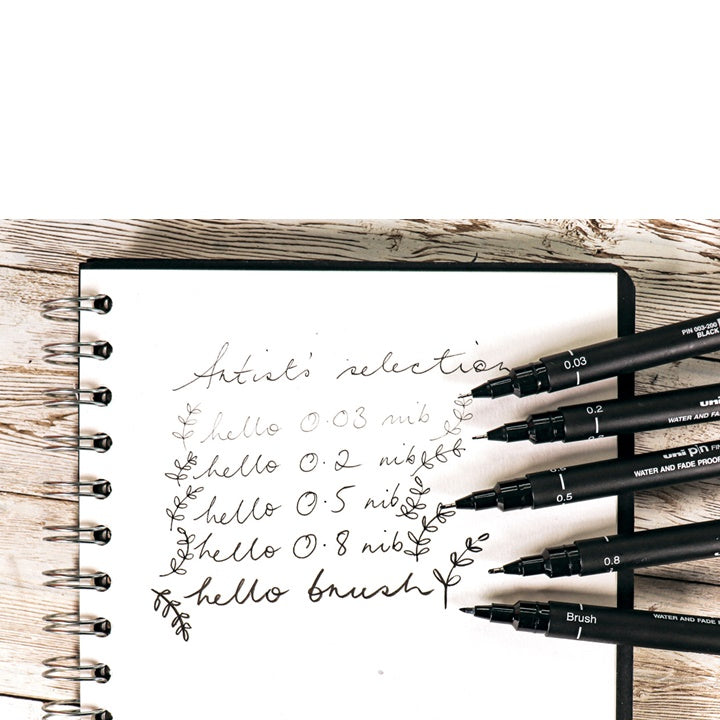 Artist's selection
hello 0.03 nib
hello 0.2 nib
hello 0.5 nib
hello 0.8 nib
hello brush
PIN 003-200
BLACK
0.03
0.2
uni
WATER AND FA
uni pin FIN
WATER AND FADE PROOF
0.5
0.8
Brush
WATER AND FADE